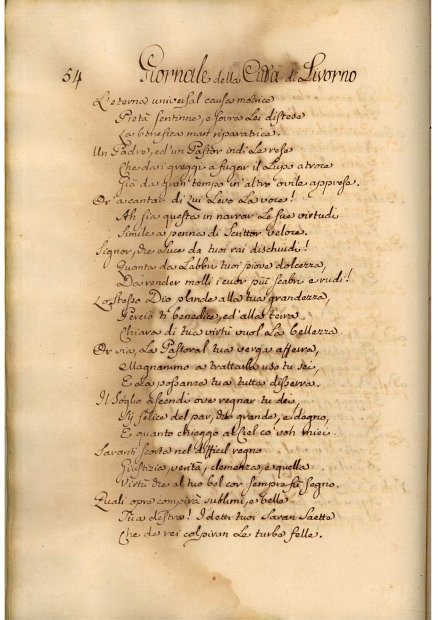 54 Giornale della Città di Livorno
L'eterna universal causa motrice
Pietà sentinne, e sovra Lei distese
La benefica man riparatrice.
Un Padre, ed un Pastor indi Le rese
Che da i greggi a fugar il Lupo atroce
Già da gran tempo in altro ovile apprese.
Or a cantar di Lui Levo La voce!
Ah sia questa in narrar Le sue virtudi
Simile a penna di Scrittor veloce.
Signor, che Luce da tuoi rai dischiudi!
Quanta da Labbri tuoi piove dolcezza,
Da render molli i cuor più scabri e rudi!
Lo stesso Dio plaude alla tua grandezza,
Perciò ti benedice, ed alla terra
Chiara di tua virtù vuol La bellezza.
Or via, La Pastoral tua verga afferra,
Magnanimo a trattarla uso tu sei,
E La possanza tua tutta disserra.
Il Soglio ascendi ove regnar tu dei,
Sì felice del par, che grande, e degno,
E quanto chieggo al Ciel co' voti miei.
Saranti scorta nel difficil regno
Giustizia, verità, clemenza, e quella
Virtù che al tuo bel cor sempre fù segno.
Quali opre compirà sublimi, e belle
Tua destra! I detti tuoi saran saette
Che de rei colpiran Le turbe felle.